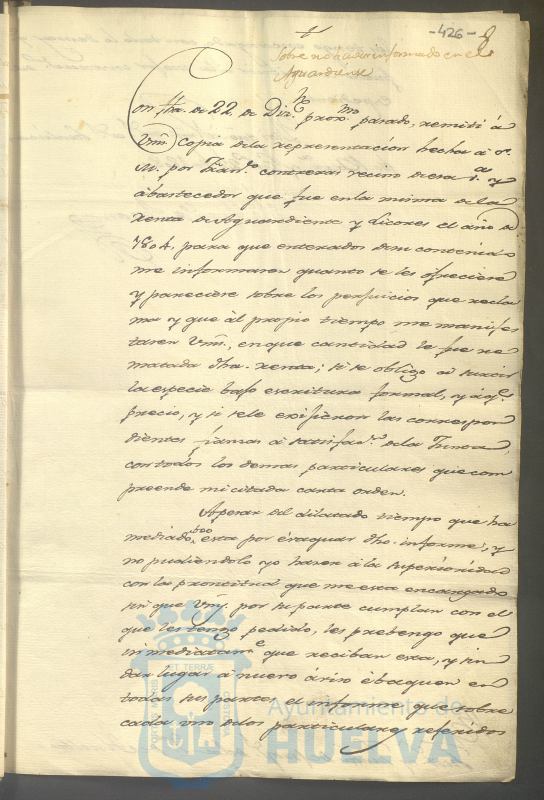 -426- 8
Sobre no haver informado en el
Aguardiente
Con fha. de 22, de Dizre. proxmo. pasado, remiti á
Vms. Copia de la representacion hecha á S.
M. por Franco. Contreras vecino de esa va. y
abastecedor que fue en la misma de la
renta de Aguardiente y Licores el año de
1804, para que enterados de su contenido
me informaran quanto se les ofreciere
y pareciere sobre los perjuicios que recla
ma y que al propio tiempo me manifes
tasen Vms. en que cantidad le fue re
matada dha. renta; si se obligó al surtir
la especie bajo escritura formal, y á qe.
precio, y si se le exijieron las correspon
dientes fianzas á satisfacn. de la Junta,
con todos los demas particulares que com
preende mi citada carta orden.
Apesar del dilatado tiempo que ha
mediado, esta por evaquar dho. informe, y
no pudiendolo yo hacer á la superioridad
con la prontitud que me esta encargado
sin que Vms. por su parte cumplan con el
que les tengo pedido, les prebengo que
inmediatamte. que reciban esta, y sin
dar lugar á nuevo áviso ébaquen en
todas sus partes el informe que sobre
cada uno de los particulares referidos
ET TERRAE
Ayuntamiento de
HUELVA